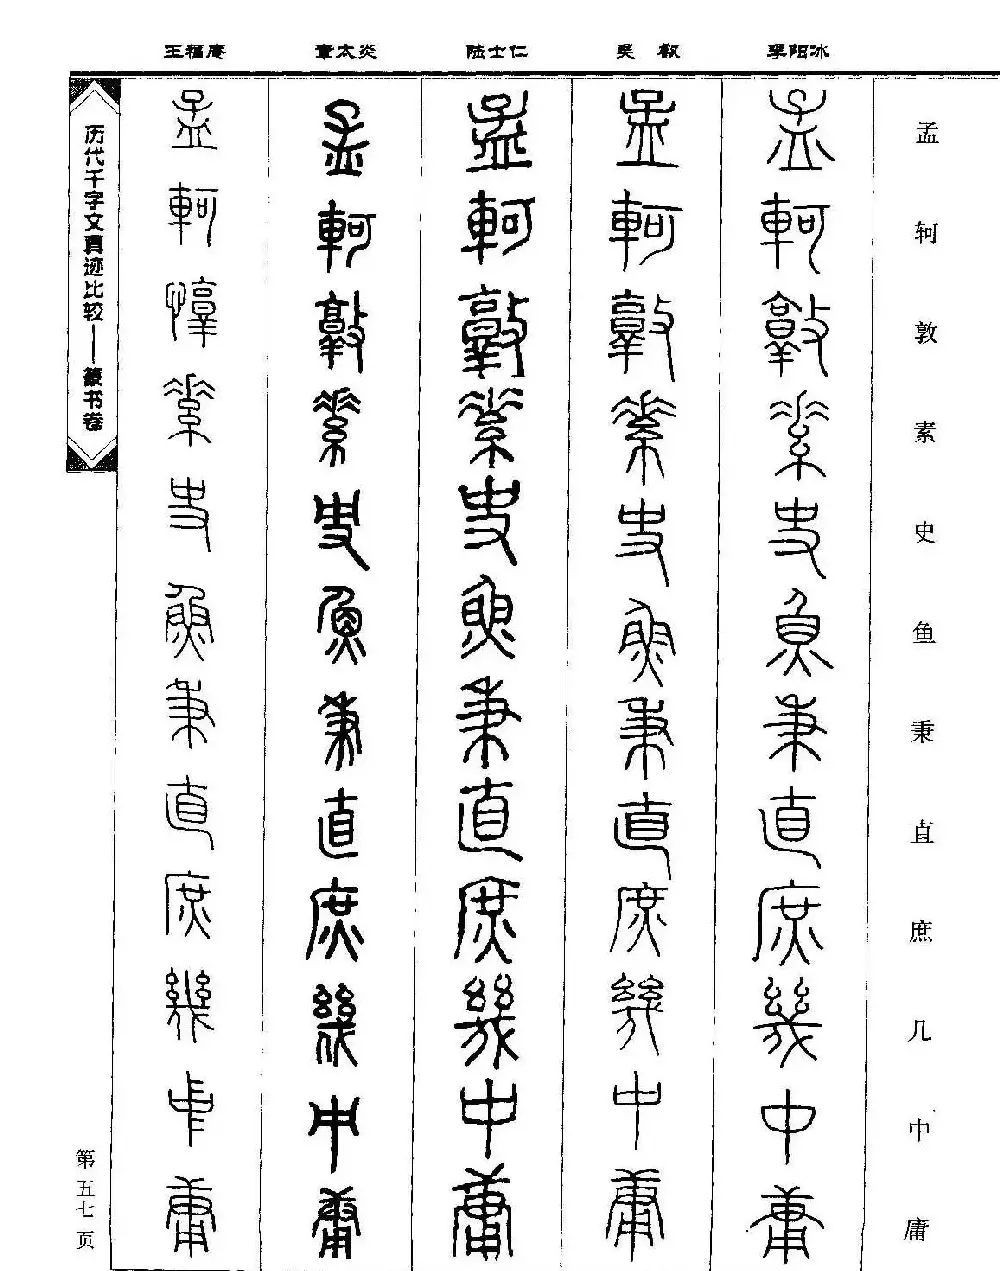 王福庵 章太炎 陆士仁 吴叡 李阳冰
孟轲敦素史鱼秉直庶几中庸
孟軻敦素史魚秉直庶幾中庸
孟軻敦素史魚秉直庶幾中庸
孟軻敦素史魚秉直庶幾中庸
孟軻敦素史魚秉直庶幾中庸
孟軻惇素史魚秉直庶幾中庸
历代千字文真迹比较——篆书卷
第五七页